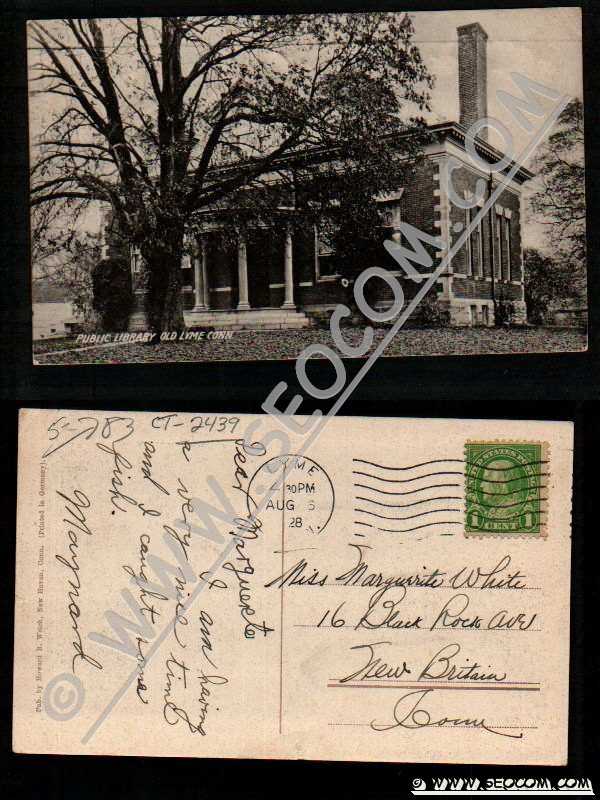 PUBLIC LIBRARY OLD LYME CONN.
WWW.SEOCOM.COM
5-783 CT-2439
Dear Marguerite
I am having
a very nice time
and I caught some
fish.
Maynard
Pub. by Howard B. Welch, New Haven, Conn. (Printed in Germany).
LYME
4 30PM
AUG 6
28
UNITED STATES POSTAGE
1 CENT 1
Miss Marguerite White
16 Black Rock AVE
New Britain
Conn
© WWW.SEOCOM.COM
© WWW.SEOCOM.COM